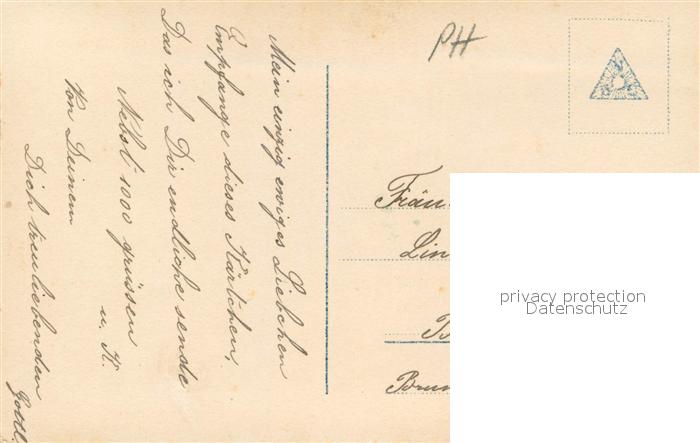 Mein einzig ewiges Liebchen
Empfange dieses Kärtchen,
Das ich Dir endliche sende
Nebst 1000 grüssen
u. K.
Von Deinem
Dich treu liebenden
PH
Fräu
Lin
B
Brun
privacy protection
Datenschutz